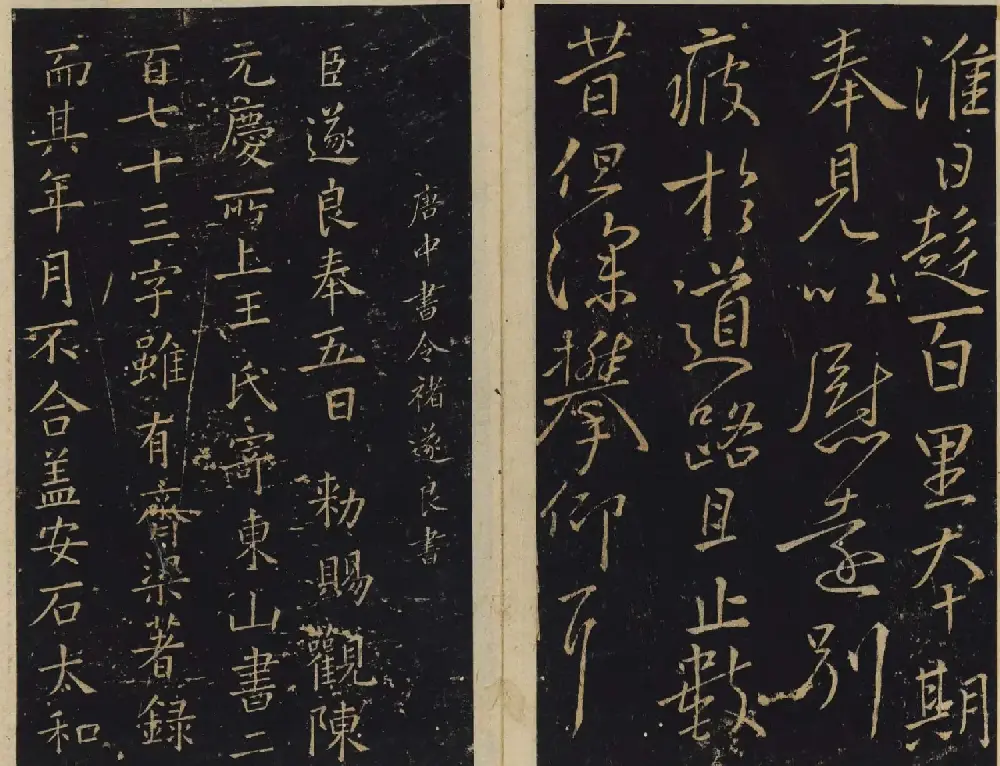 淮日趍百里大十期
奉見以慰遠別
疲於道路且止數
昔但深攀仰耳
唐中書令褚遂良書
臣遂良奉五日 勑賜觀陳
元慶所上王氏寄東山書二
百七十三字雖有齊梁著録
而其年月不合盖安石太和